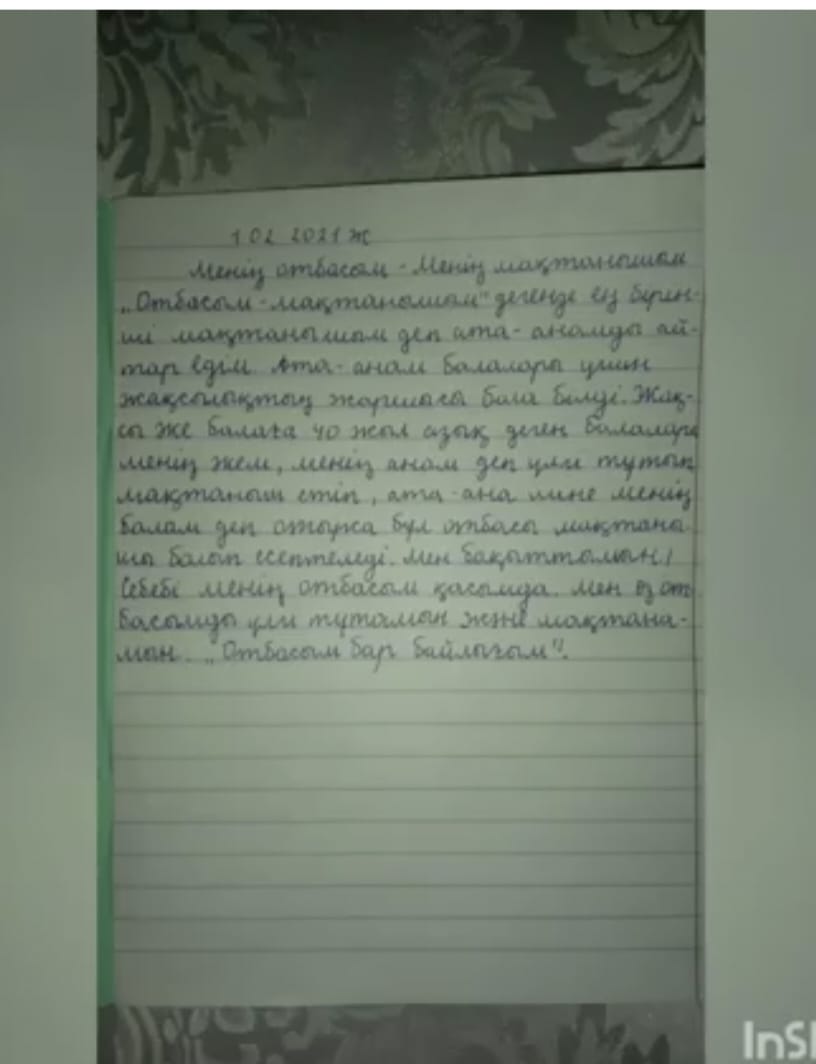 1 02 2021 ж
Менің отбасым - Менің мақтанышым
„Отбасым - мақтанышым" дегенде ең бірін-
ші мақтанышым деп ата-анамды ай-
тар едім. Ата-анам балалары үшін
жақсылықтың жаршысы бола білді. Жақ-
сы же балаға 40 жыл азық деген балалары
менің жем, менің анам деп үлгі тұтып
мақтаныш етіп, ата-ана міне менің
балам деп отырса бұл отбасы мақтаны-
шы болып есептеледі. Мен бақыттымын!
Себебі менің отбасым қасымда. Мен өз от
басымды үлгі тұтамын және мақтана-
мын. „Отбасым бар байлығым".
InSh